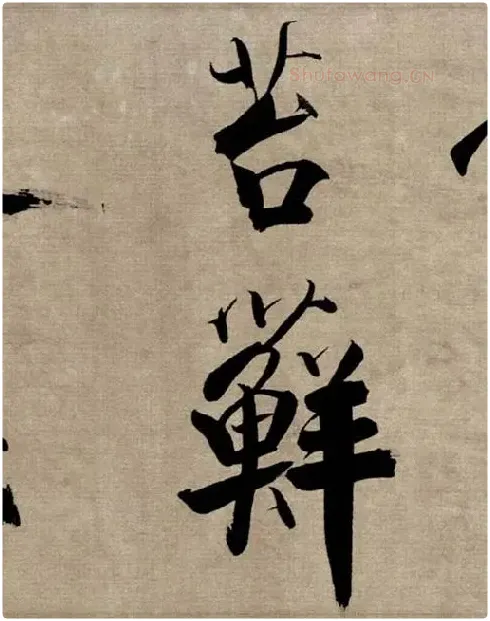 苔蘚
Shufawang.CN